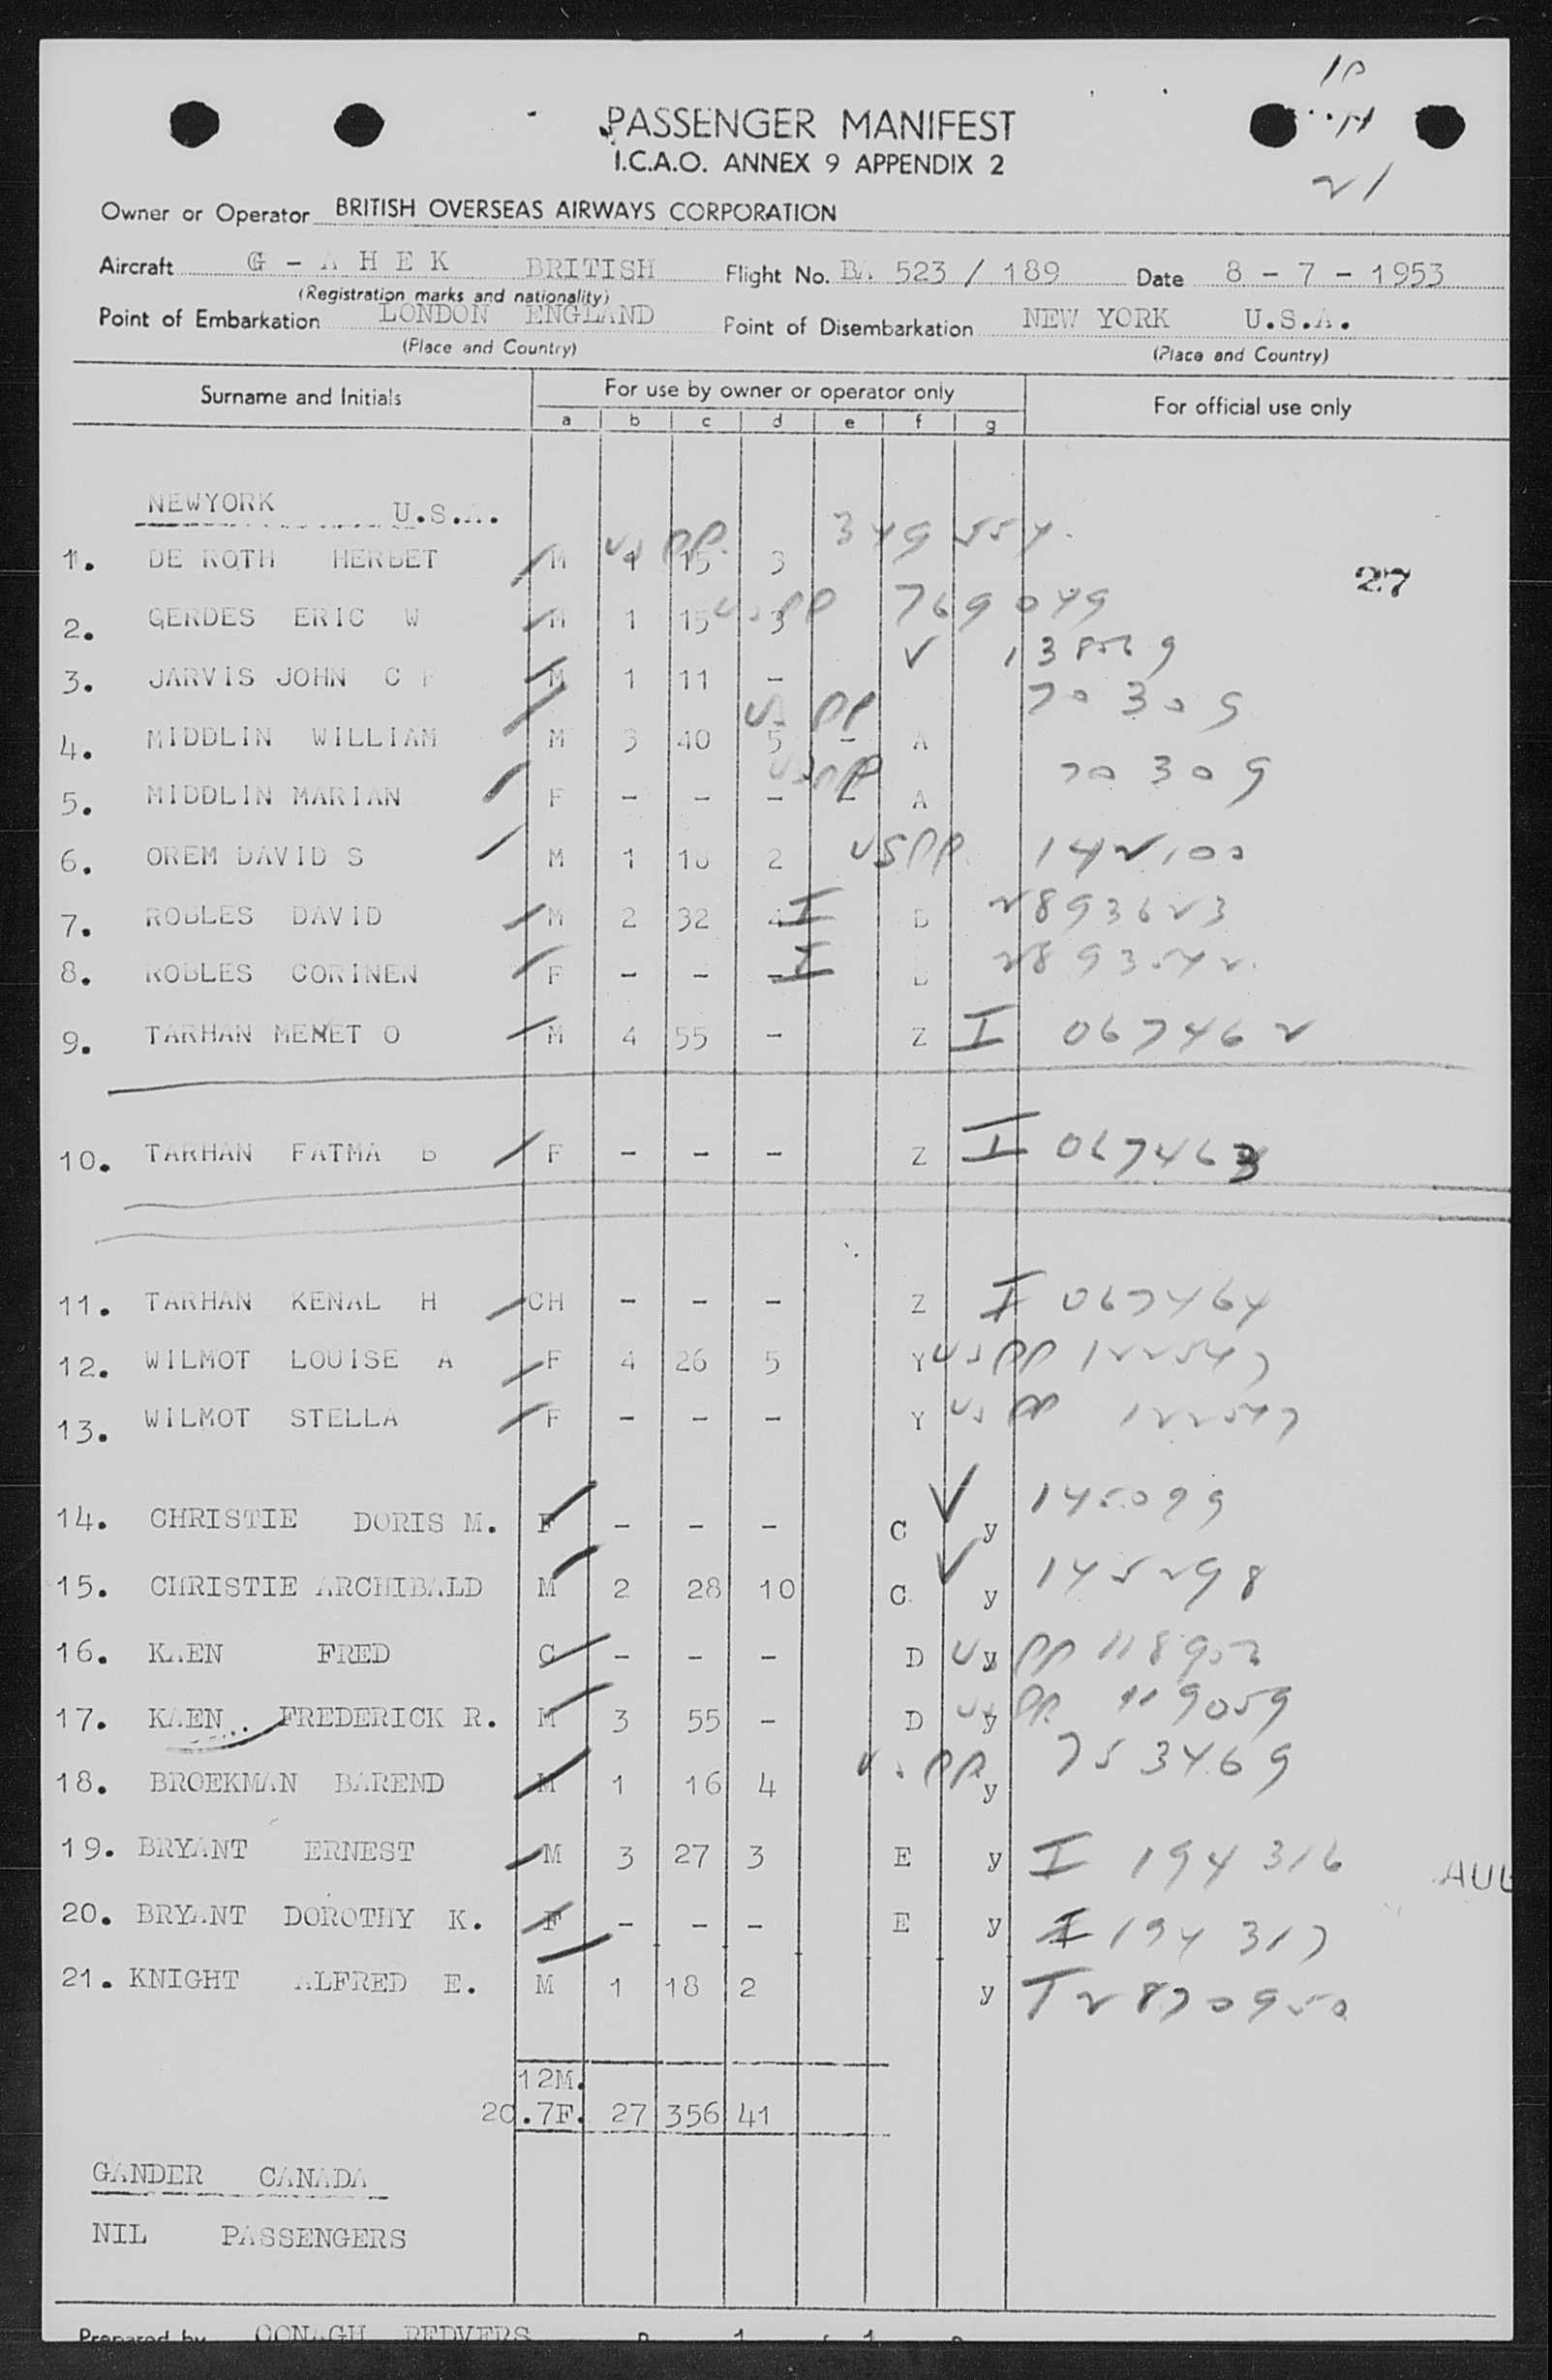 10
21
PASSENGER MANIFEST
I.C.A.O. ANNEX 9 APPENDIX 2
Owner or Operator BRITISH OVERSEAS AIRWAYS CORPORATION
Aircraft G - A H E K BRITISH Flight No. BA 523 / 189 Date 8 - 7 - 1953
(Registration marks and nationality)
Point of Embarkation LONDON ENGLAND Point of Disembarkation NEW YORK U.S.A.
(Place and Country) (Place and Country)
Surname and Initials For use by owner or operator only For official use only
a b c d e f g
NEWYORK U.S.A.
us pp. 349554.
1. DE ROTH HERBET M 1 15 3
27
2. GERDES ERIC W M 1 15 3 us pp 769049
3. JARVIS JOHN C F M 1 11 -
us pp 70309
4. MIDDLIN WILLIAM M 3 40 5 - A
uspp 70309
5. MIDDLIN MARIAN F - - - - A
6. OREM DAVID S M 1 18 2 uspp 142100
7. ROBLES DAVID M 2 32 4 I B 2893623
8. ROBLES CORINEN F - - - I B 2893542
9. TARHAN MEMET O M 4 55 - Z I 067462
10. TARHAN FATMA B F - - - Z I 067463
11. TARHAN KENAL H CH - - - Z I 067464
12. WILMOT LOUISE A F 4 26 5 Y us pp 122547
13. WILMOT STELLA F - - - Y us pp 122547
14. CHRISTIE DORIS M. F - - - C y 145099
15. CHRISTIE ARCHIBALD M 2 28 10 C y 145298
16. KAEN FRED C - - - D y us pp
17. KAEN FREDERICK R. M 3 55 - D y us pp 119059
18. BROEKMAN BAREND M 1 16 4 y us pp 753469
19. BRYANT ERNEST M 3 27 3 E y I 194316
AUG
20. BRYANT DOROTHY K. F - - - E y I 194317
21. KNIGHT ALFRED E. M 1 18 2 y I 2870950
12M.
20.7F. 27 356 41
GANDER CANADA
NIL PASSENGERS
Prepared by OONAGH REDVERS